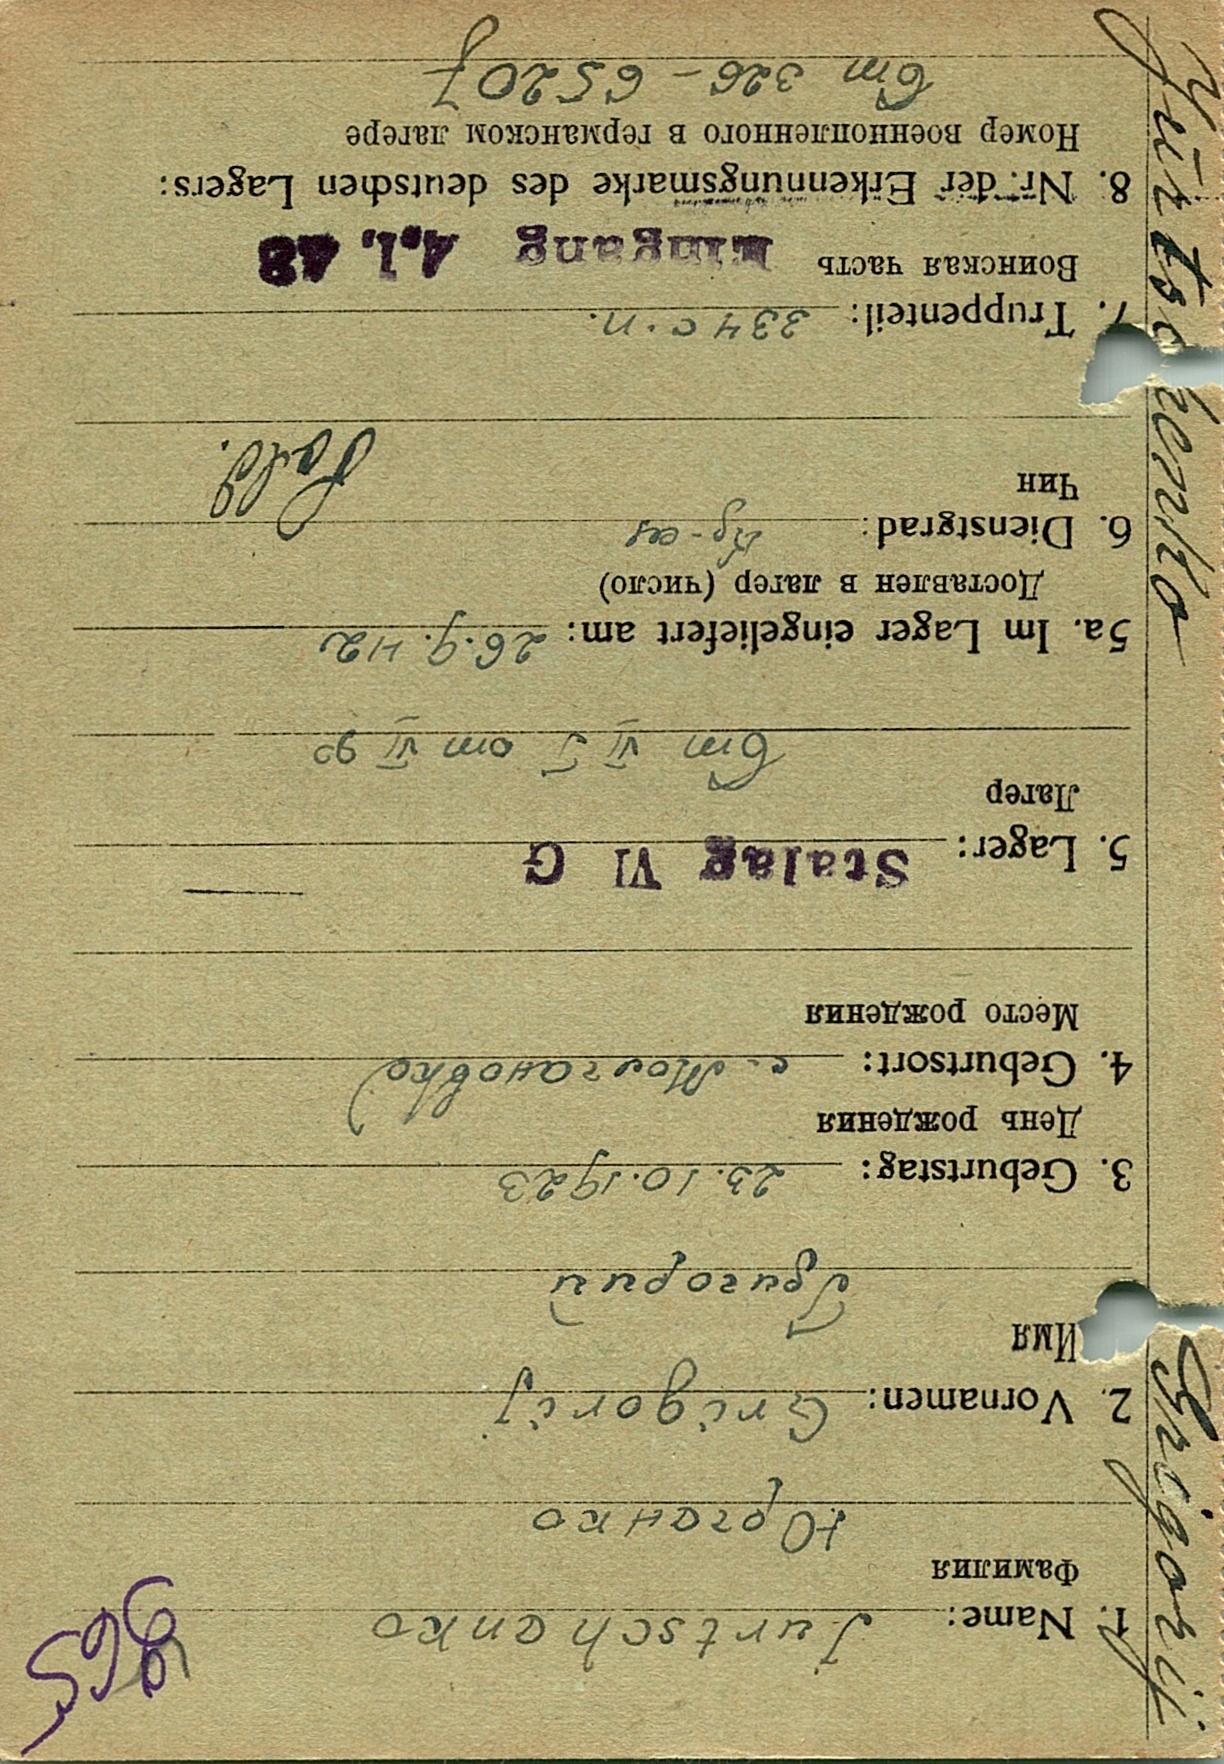 1. Name: Jurtschanko
Фамилия
Юрчанко
2. Vornamen: Grigorij
Имя
Григорий
3. Geburtstag: 23.10.1923
День рождения
4. Geburtsort: с. Молчановка
Место рождения
5. Lager: Stalag VI G
Лагер
5a. Im Lager eingeliefert am: 26.9.42
Доставлен в лагер (число)
6. Dienstgrad: Sold.
Чин
7. Truppenteil: 334 с.п.
Воинская часть Eingang 4.1.43
8. Nr. der Erkennungsmarke des deutschen Lagers:
Номер военнопленного в германском лагере
326 - 65207
Jurtschenko Grigorij